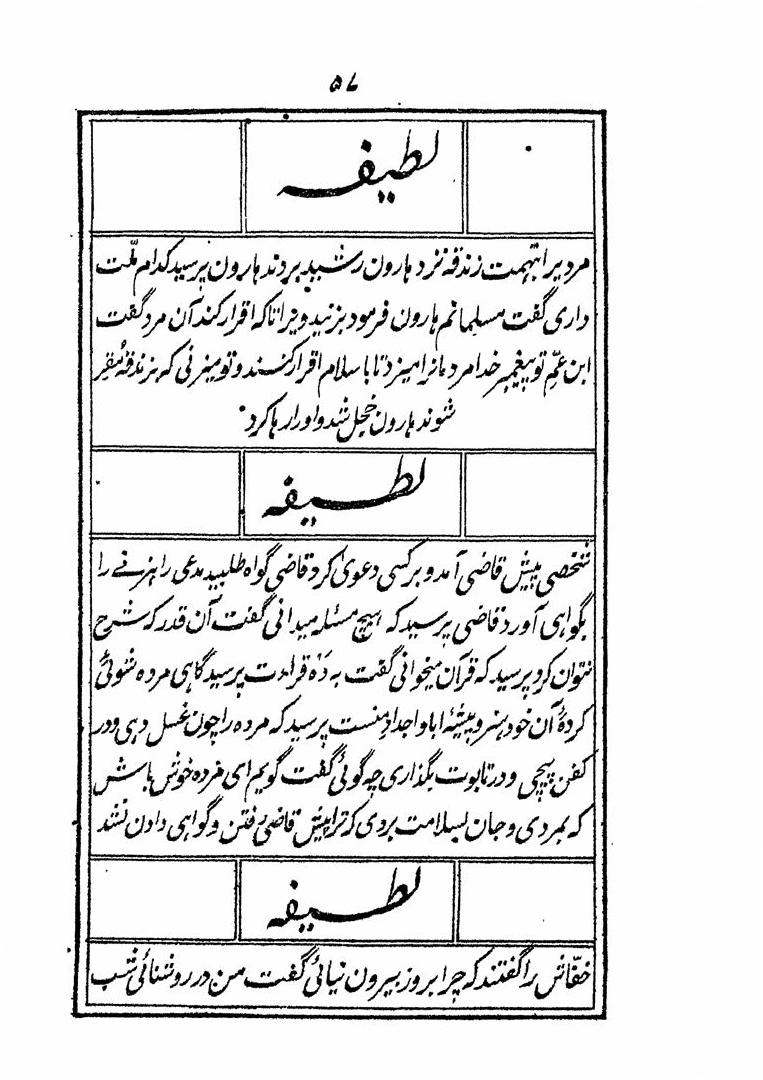 ۵۷
لطیفه
مردیرا بتهمت زندقه نزد هارون رشید بردند هارون پرسید کدام ملّت
داری گفت مسلمانم هارون فرمود بزنید ویرا تا که اقرار کند آن مرد گفت
ابن عمّ تو پیغمبر خدا مردمانرا میزد تا باسلام اقرار کنند و تو میزنی که بزندقه مُقِر
شوند هارون خجل شد و اورا رها کرد
لطیفه
شخصی پیش قاضی آمد و بر کسی دعوی کرد قاضی گواه طلبید مدعی راهزنے را
بگواهی آورد قاضی پرسید که هیچ مسئله میدانی گفت آن قدر که شرح
نتوان کرد پرسید که قرآن میخوانی گفت به دَه قراءت پرسید گاهی مرده شوئی
کردهٔ آن خود هنر و پیشهٔ ابا و اجداد منست پرسید که مرده را چون غسل دهی و در
کفن پیچی و در تابوت بگذاری چه گوئی گفت گویم ای مرده خوش باش
که بمردی و جان بسلامت بردی که ترا پیش قاضی رفتن و گواهی دادن نشد
لطیفه
خفّاش را گفتند که چرا بروز بیرون نیائی گفت من در روشنائی شب